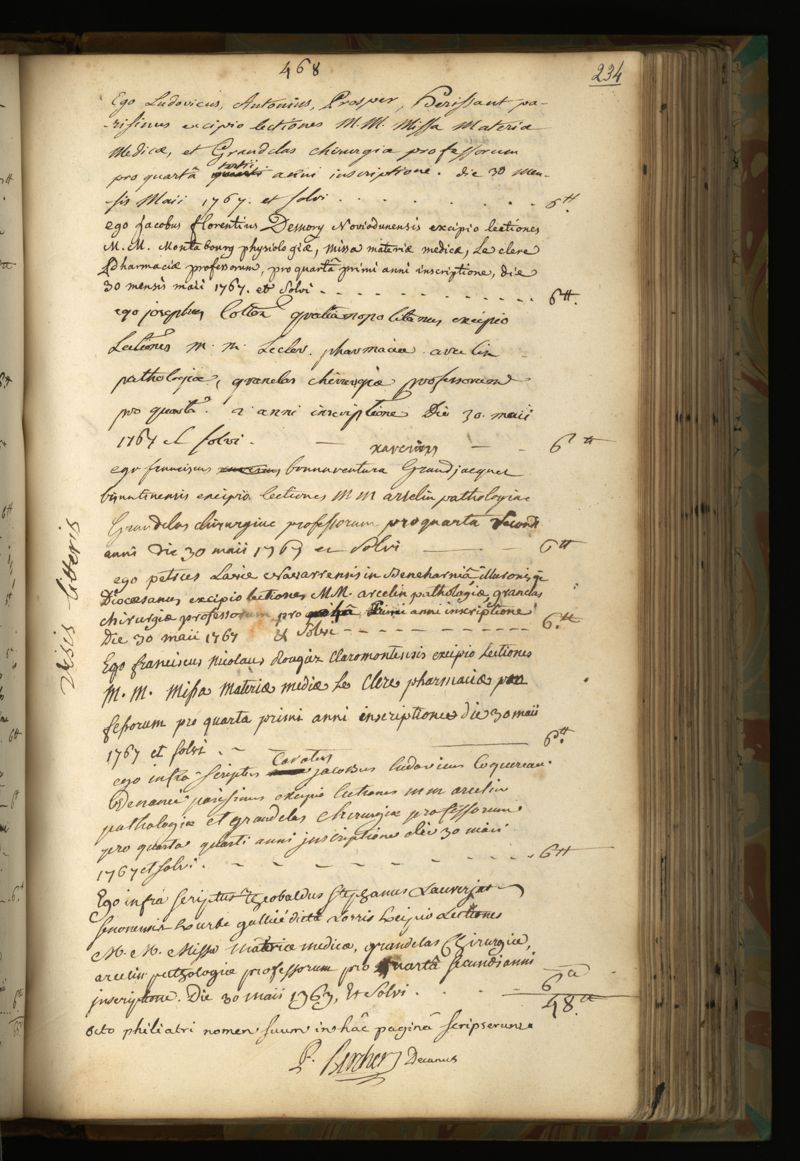 468
234
Ego Ludovicus, Antonius, Prosper, Herissant pa-
risinus excipio lectiones M.M. Missa Materiæ
Medicæ, et Grandclas chirurgiæ professorum
tertii
pro quartâ quarti anni inscriptione. die 30 men-
sis Maii 1767. et solvi . . . . . . . . . 6 ₶.
ego jacobus florentius Demory Noviodunensis excipio lectiones
M. M. Montabourg physiologiæ, missa materiæ medicæ, Le clerc
Pharmaciæ professorum, pro quartâ primi anni inscriptione, die
30 mensis maii 1767. et solvi - - - - - - - - - 6 ₶.
ego josephus excipio
Lectiones m. m. Leclerc. pharmaciæ arcelin
pathologiæ, grandclas chirurgiæ professorum
pro quartâ. 2 anni inscriptione Die 30. maii
1767 et solvi. — — - 6 ₶
xaverius
ego franciscus bonnaventura Grandjacquet
excipio lectiones M M arselin pathologiae
Grandclas chirurgiae professorum pro quarta secundi
anni Die 30 maii 1767 et solvi — — - 6 ₶
ego petrus Navarrensis in Beneharniâ
Diocesanus excipio lectiones M.M. arcelin pathologiæ, grandclas
chirurgiæ professorum pro primi anni inscriptione
Die 30 maii 1767 & solvi - - - - - - - - - 6. ₶
Ego franciscus Nicolaus Rougier Claromontensis excipio Lectiones
M. M. Missa Materiæ mediæ Le Clerc pharmaciæ pro
fessorum pro quarta primi anni inscriptione die 30 maii
1767 et solvi . - — 6 ₶.
Carolus
ego infra scriptus jacobus ludovicus Coquereau
parisinus excipio lectiones m m arcelin
pathologiæ et grandclas chirurgiæ professorum
pro quarta quarti anni inscriptione die 30 maii
1767 et solvi . - - - - - - - - - 6 ₶
Ego infrà scriptus Theobaldus Stephanus Lauverjat
senonensis ex urbe gallicè dictâ Lorris excipio Lectiones
M. M. Missa materiæ medicæ, grandclas Chirurgiæ,
arcelin pathologiæ professorum pro quartâ secundi anni
inscriptione. Die 30 maii 1767, et solvi . . . . 6 ₶
48. ₶
octo philiatri nomen suum in hâc paginâ scripserunt
P. Bercher Decanus
visis litteris